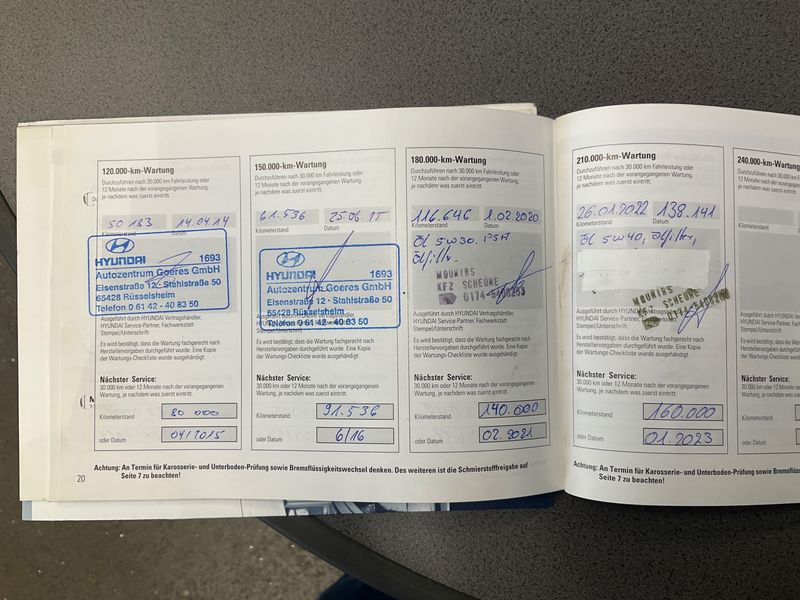 120.000-km-Wartung
Durchzuführen nach 30.000 km Fahrleistung oder
12 Monate nach der vorangegangenen Wartung,
je nachdem was zuerst eintritt.
50 183 14.04.14
Kilometerstand Datum
HYUNDAI 1693
Autozentrum Goeres GmbH
Eisenstraße 12 - Stahlstraße 50
65428 Rüsselsheim
Telefon 0 61 42 - 40 83 50
Ausgeführt durch HYUNDAI Vertragshändler,
HYUNDAI Service-Partner, Fachwerkstatt
Stempel/Unterschrift
Es wird bestätigt, dass die Wartung fachgerecht nach
Herstellervorgaben durchgeführt wurde. Eine Kopie
der Wartungs-Checkliste wurde ausgehändigt.
Nächster Service:
30.000 km oder 12 Monate nach der vorangegangenen
Wartung, je nachdem was zuerst eintritt.
Kilometerstand 80 000
oder Datum 04/2015
150.000-km-Wartung
Durchzuführen nach 30.000 km Fahrleistung oder
12 Monate nach der vorangegangenen Wartung,
je nachdem was zuerst eintritt.
61.536 25.06.15
Kilometerstand Datum
HYUNDAI 1693
Autozentrum Goeres GmbH
Eisenstraße 12 - Stahlstraße 50
65428 Rüsselsheim
Telefon 0 61 42 - 40 83 50
Es wird bestätigt, dass die Wartung fachgerecht nach
Herstellervorgaben durchgeführt wurde. Eine Kopie
der Wartungs-Checkliste wurde ausgehändigt.
Nächster Service:
30.000 km oder 12 Monate nach der vorangegangenen
Wartung, je nachdem was zuerst eintritt.
Kilometerstand 91.536
oder Datum 6/16
180.000-km-Wartung
Durchzuführen nach 30.000 km Fahrleistung oder
12 Monate nach der vorangegangenen Wartung,
je nachdem was zuerst eintritt.
116.646 1.02.2020
Kilometerstand Datum
Öl 5W30
Ölfilter
MOUNIRS
KFZ SCHEUNE
Ausgeführt durch HYUNDAI Vertragshändler,
HYUNDAI Service-Partner, Fachwerkstatt
Stempel/Unterschrift
Es wird bestätigt, dass die Wartung fachgerecht nach
Herstellervorgaben durchgeführt wurde. Eine Kopie
der Wartungs-Checkliste wurde ausgehändigt.
Nächster Service:
30.000 km oder 12 Monate nach der vorangegangenen
Wartung, je nachdem was zuerst eintritt.
Kilometerstand 140.000
oder Datum 02.2021
Achtung: An Termin für Karosserie- und Unterboden-Prüfung sowie Bremsflüssigkeitswechsel denken. Des weiteren ist die Schmierstofffreigabe auf
Seite 7 zu beachten!
20
210.000-km-Wartung
Durchzuführen nach 30.000 km Fahrleistung oder
12 Monate nach der vorangegangenen Wartung,
je nachdem was zuerst eintritt.
26.01.2022 138.141
Kilometerstand Datum
Öl 5W40, Ölfilter,
MOUNIRS
KFZ SCHEUNE
Ausgeführt durch HYUNDAI Vertragshändler,
HYUNDAI Service-Partner, Fachwerkstatt
Stempel/Unterschrift
Es wird bestätigt, dass die Wartung fachgerecht nach
Herstellervorgaben durchgeführt wurde. Eine Kopie
der Wartungs-Checkliste wurde ausgehändigt.
Nächster Service:
30.000 km oder 12 Monate nach der vorangegangenen
Wartung, je nachdem was zuerst eintritt.
Kilometerstand 160.000
oder Datum 01.2023
240.000-km
Durchzuführen nach
12 Monate nach der
je nachdem was zuerst
Kilometerstand
Achtung: An Termin für Karosserie- und Unterboden-Prüfung sowie Bremsflüss
Seite 7 zu beachten!